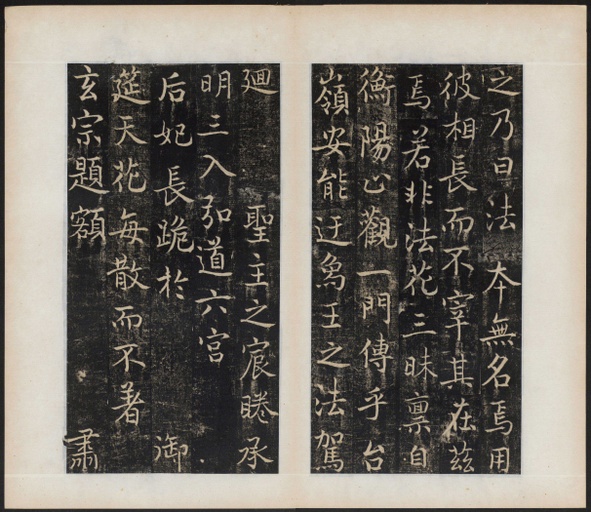 之乃曰法夲無名焉用
彼相長而不宰其在茲
焉若非法花三昧禀自
衡陽止觀一門傳乎台
嶺安能迂象王之法駕
廻 聖主之宸睠承
明三入弘道六宮
后妃長跪於 御
莚天花每散而不著
玄宗題額 肅